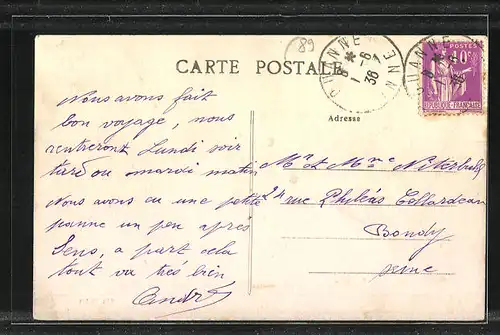 89
OUANNE
1 -8
36
YONNE
OUANNE
1 -8
36
40c
POSTES
REPUBLIQUE FRANÇAISE
CARTE POSTALE
Adresse
Nous avons fait
bon voyage, nous
rentrerons Lundi soir
tard ou mardi matin
Nous avons eu une petite
panne un peu après
Sens, a part cela
tout va très bien
André
Mr et Mme
24 rue Philéas Collardeau
Bondy
Seine